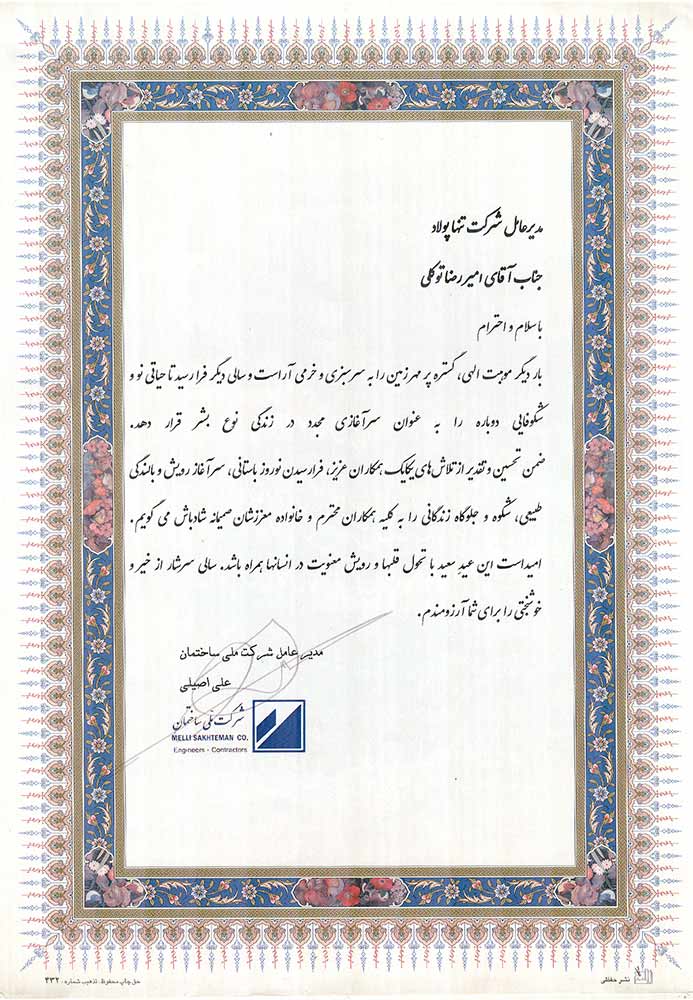 مدیرعامل شرکت تنها پولاد
جناب آقای امیررضا توکلی
با سلام و احترام
بار دیگر موهبت الهی، گستره پر مهر زمین را به سرسبزی و خرمی آراست و سالی دیگر فرا رسید تا حیاتی نو و
شکوفایی دوباره را به عنوان سرآغازی مجدد در زندگی نوع بشر قرار دهد.
ضمن تحسین و تقدیر از تلاش‌های یکایک همکاران عزیز، فرارسیدن نوروز باستانی، سرآغاز رویش و بالندگی
طبیعی، شکوه و جلوگاه زندگانی را به کلیه همکاران محترم و خانواده معززشان صمیمانه شادباش می گویم.
امید است این عیدِ سعید با تحول قلبها و رویش معنویت در انسانها همراه باشد. سالی سرشار از خیر و
خوشبختی را برای شما آرزومندم.
مدیر عامل شرکت ملی ساختمان
علی اصیلی
شرکت ملی ساختمان
MELLI SAKHTEMAN CO.
Engineers - Contractors
نشر حفظی
حق چاپ محفوظ. تذهیب شماره : ۴۳۲